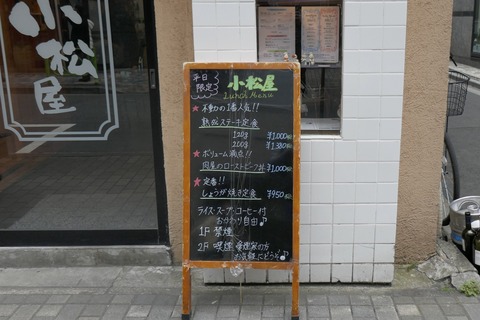 小松屋
平日
限定
小松屋
Lunch Menu
★不動の1番人気!!
熟成ステーキ定食
120g ¥1,000
200g ¥1,380
★ボリューム満点!!
肉屋のローストビーフ丼 ¥1,000
★定番!!
しょうが焼き定食 ¥950
ライス・スープ・コーヒー付
おかわり自由♪
1F 禁煙
2F 喫煙
の方
お気軽にどうぞ♪